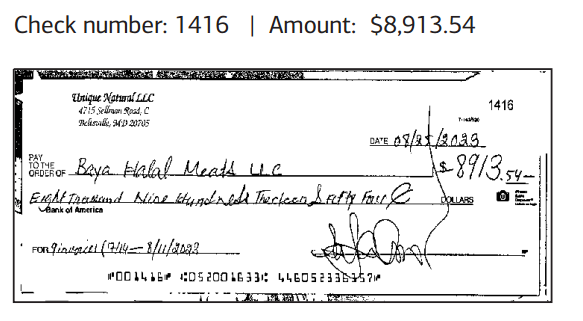 Check number: 1416 | Amount: $8,913.54
Unique Natural LLC
4715 Sellman Road, C
Beltsville, MD 20705
1416
DATE 08/25/2023
PAY TO THE ORDER OF Baya Halal Meats LLC $8913.54
Eight Thousand Nine Hundred Thirteen & Fifty Four C DOLLARS
Bank of America
FOR 9 invoices (7/14 — 8/11/2023
⑈001416⑈ ⑆052001633⑆ 446052336357⑈